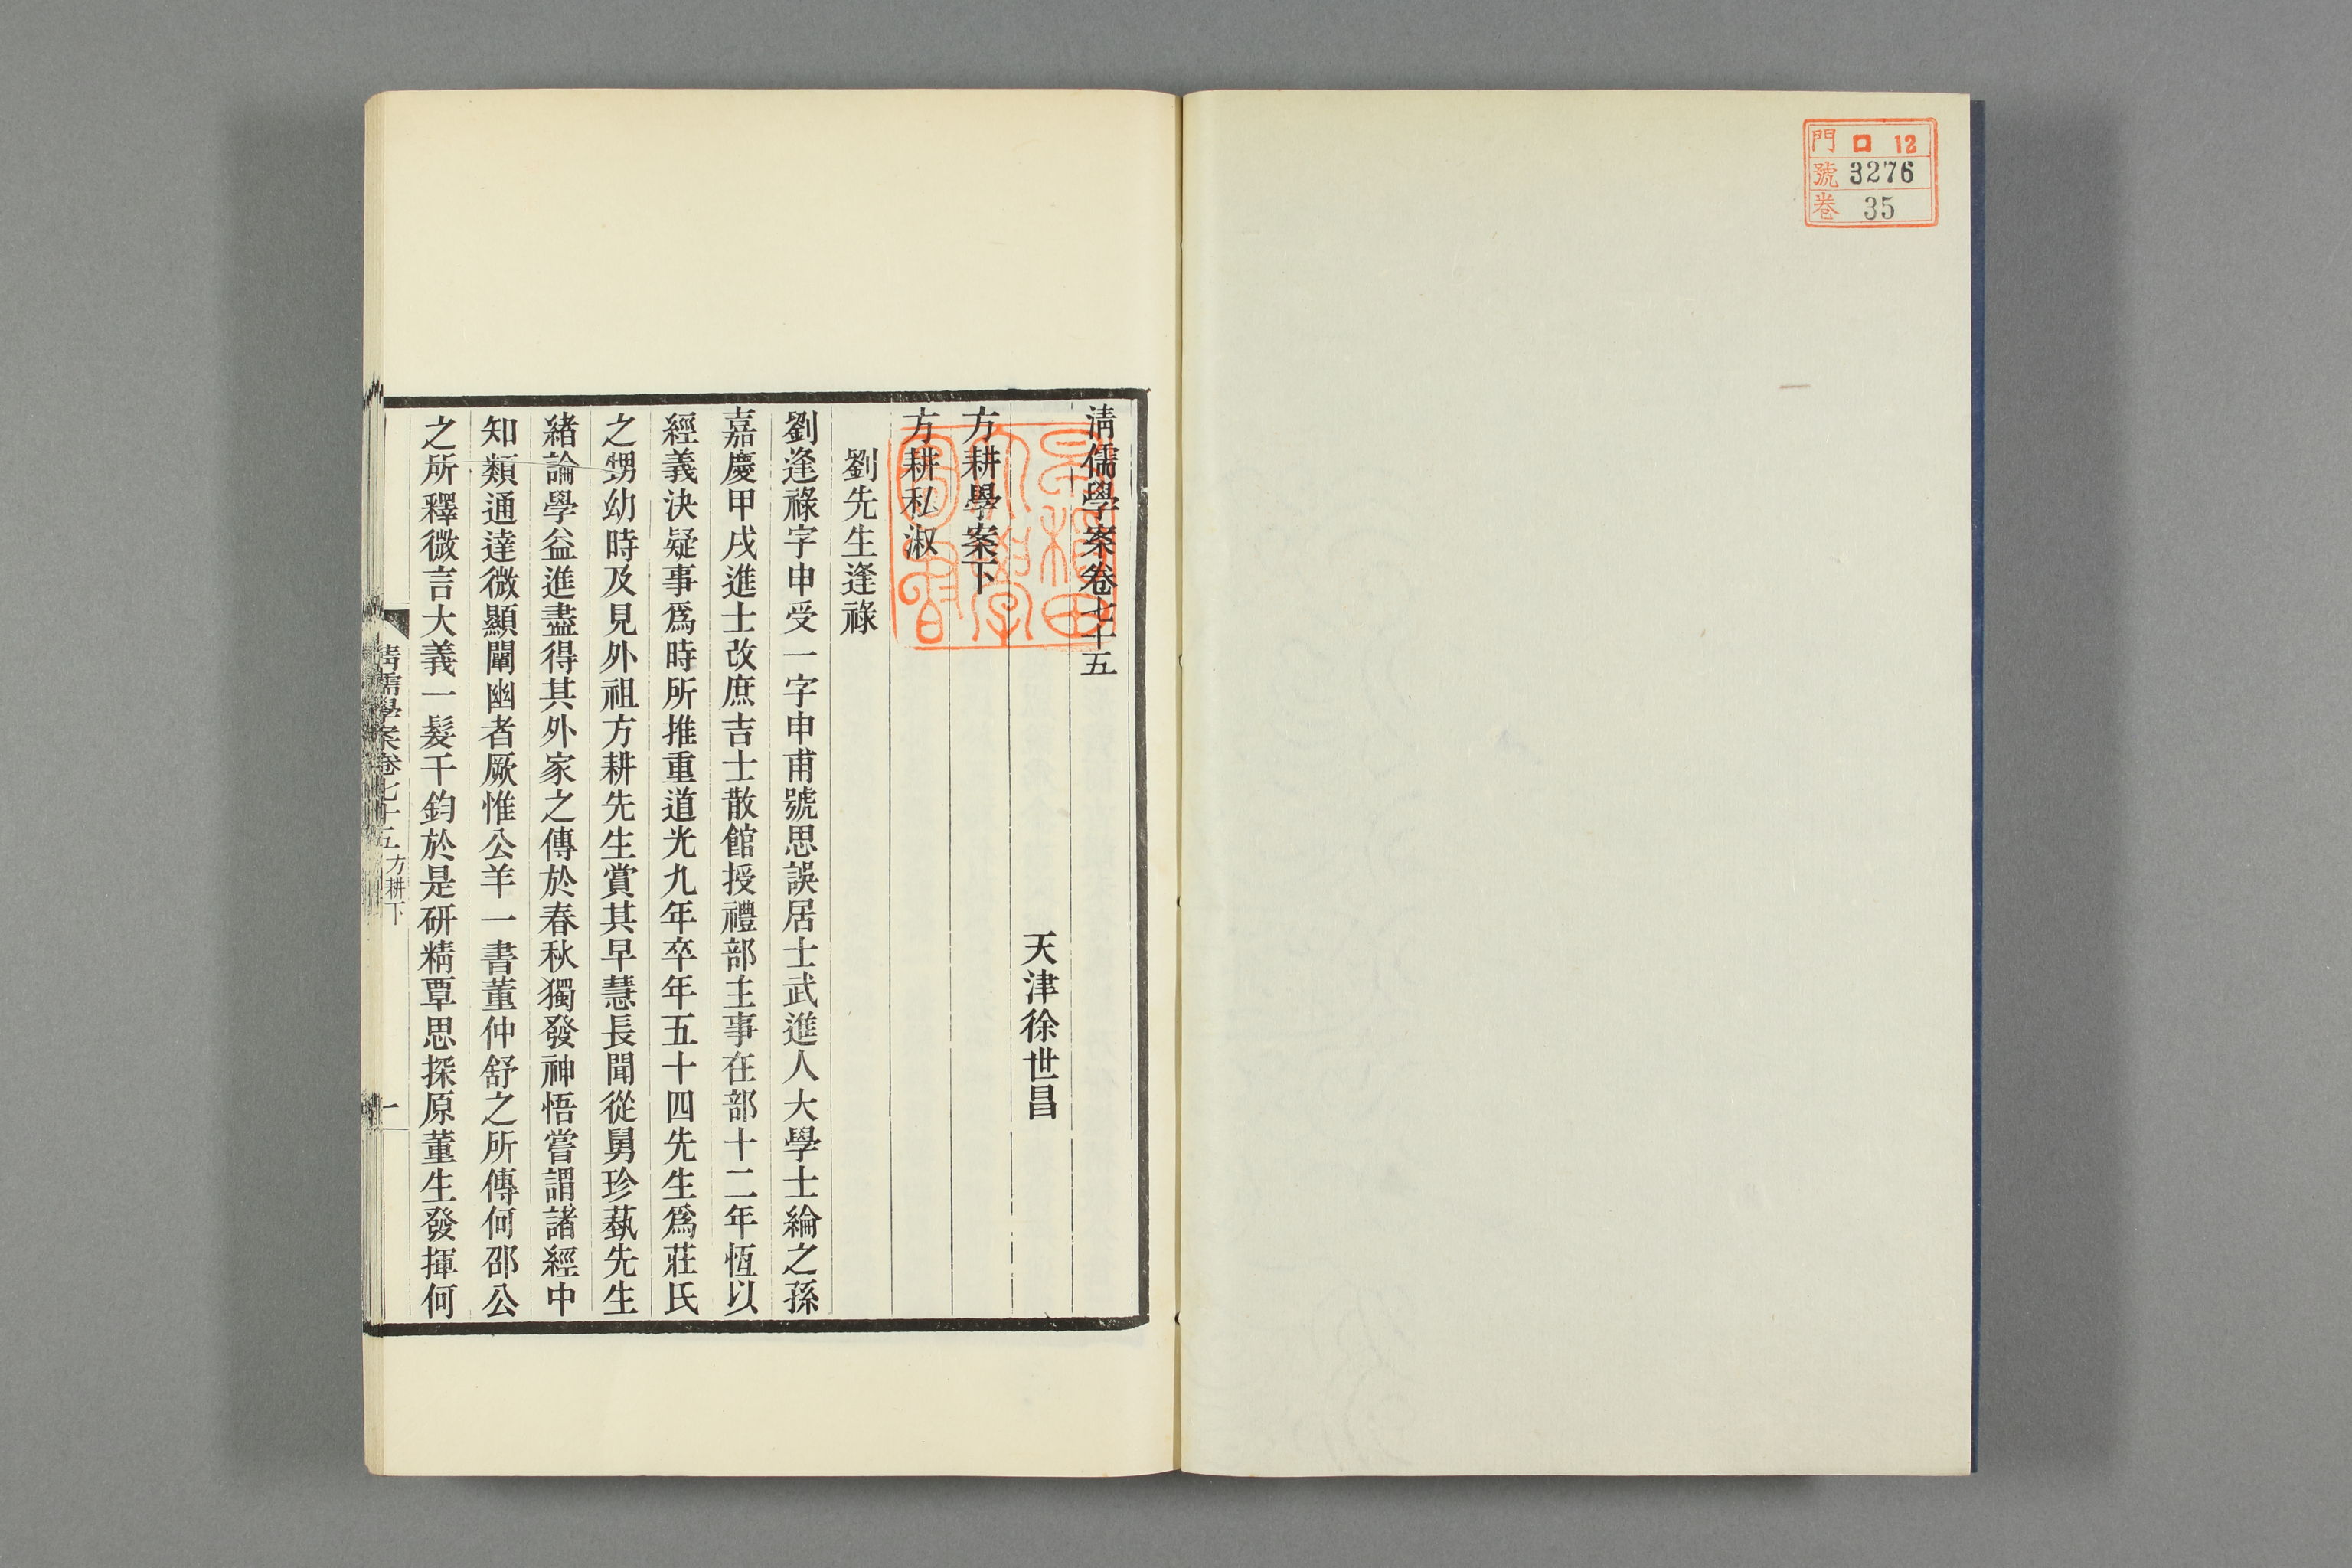 門 口 12
號 3276
卷 35
清儒學案卷七十五
天津徐世昌
方耕學案下
方耕私淑
劉先生逢祿
劉逢祿字申受一字申甫號思誤居士武進人大學士綸之孫
嘉慶甲戌進士改庶吉士散館授禮部主事在部十二年恆以
經義決疑事爲時所推重道光九年卒年五十四先生爲莊氏
之甥幼時及見外祖方耕先生賞其早慧長聞從舅珍蓺先生
緒論學益進盡得其外家之傳於春秋獨發神悟嘗謂諸經中
知類通達微顯闡幽者厥惟公羊一書董仲舒之所傳何邵公
之所釋微言大義一髮千鈞於是研精覃思探原董生發揮何
清儒學案卷七十五 方耕下
一
早稻田大學圖書